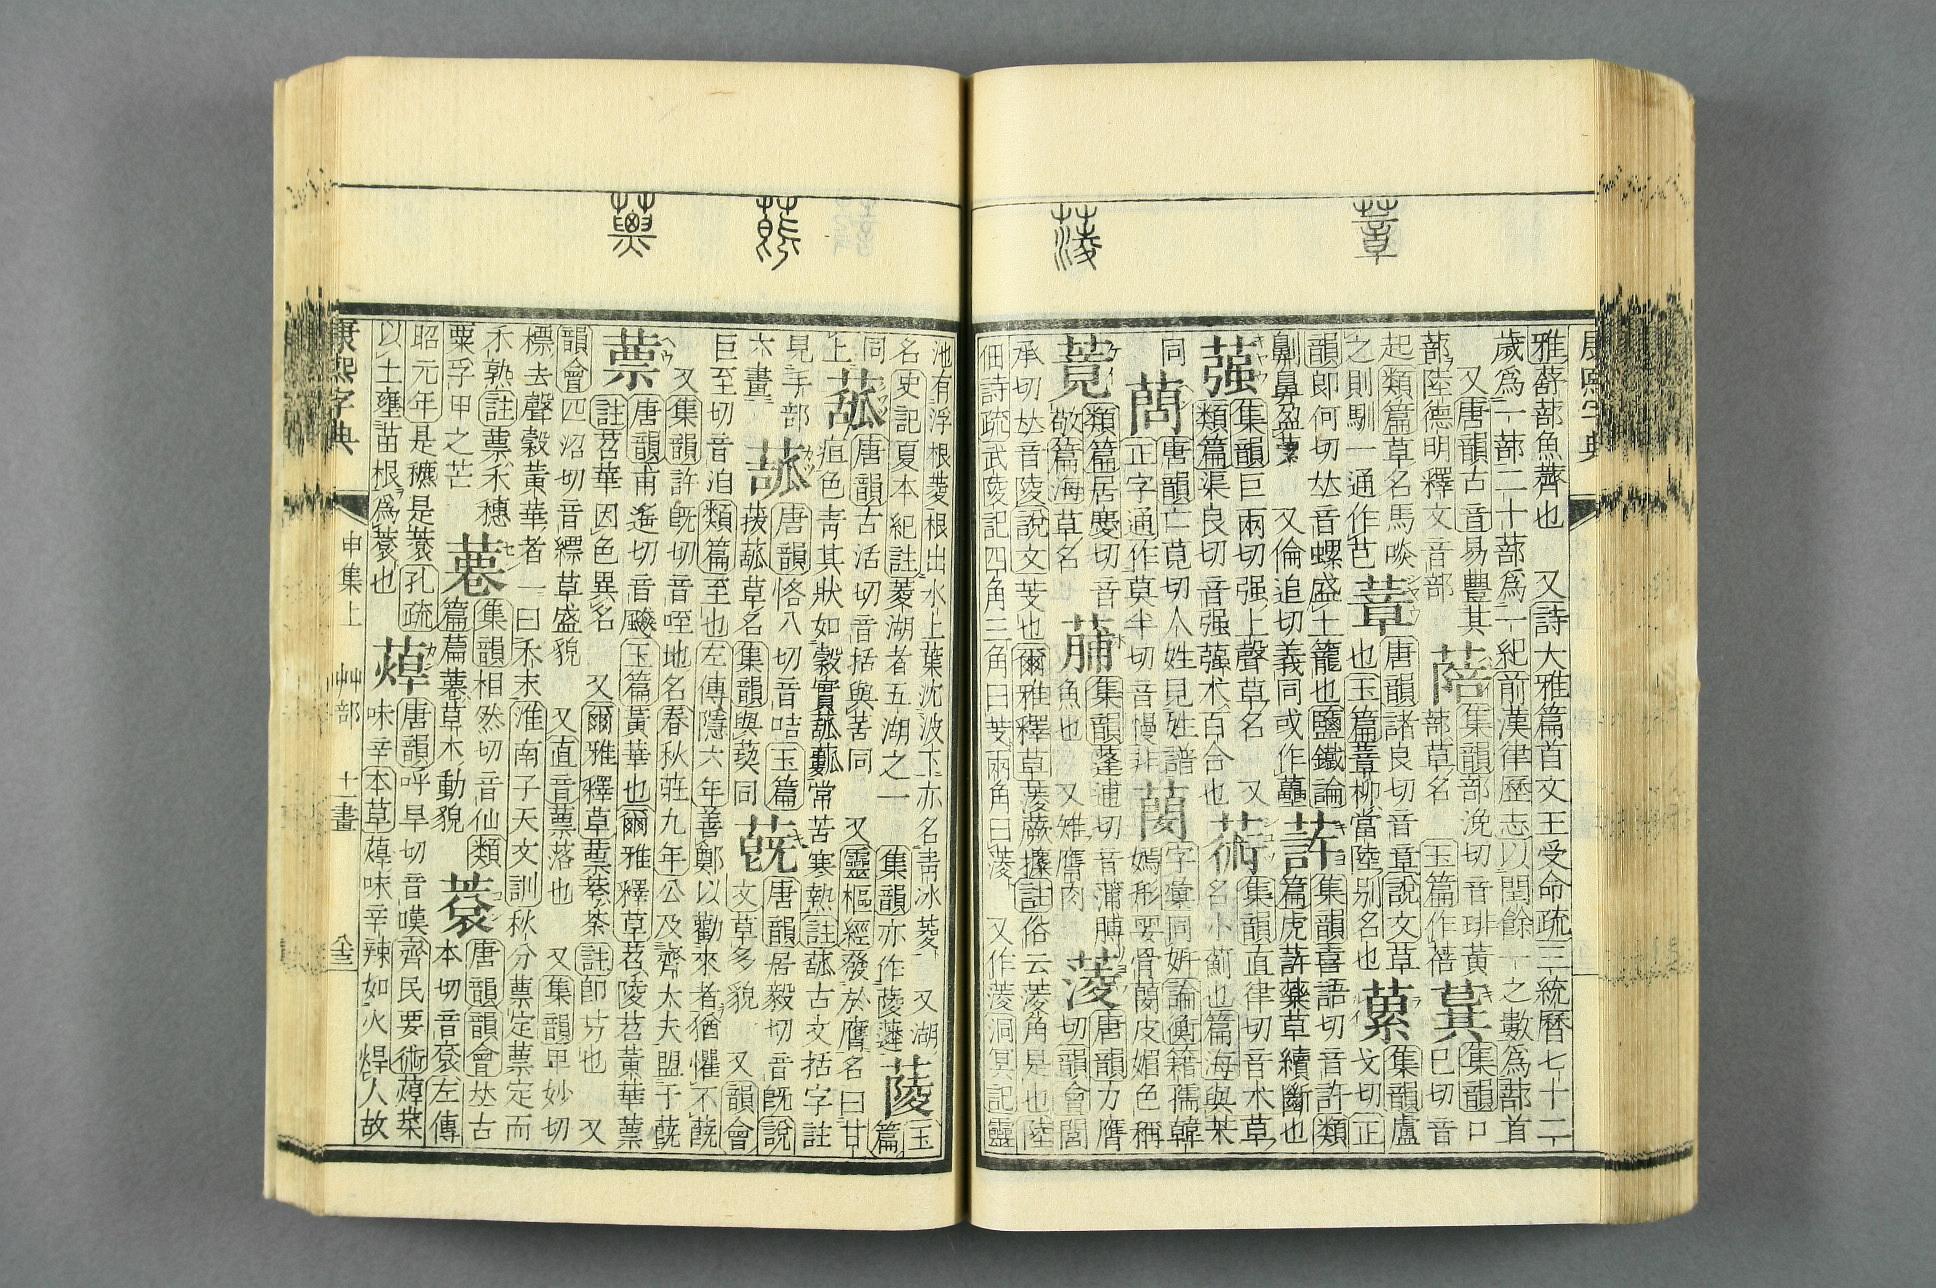 蔁
蔆
康熙字典
雅蔀蔀魚薺也 又詩大雅篇首文王受命疏三統曆七十二
歲爲一蔀二十蔀爲一紀前漢律歷志以閏餘一之數爲蔀首
又唐韻古音易豐其 集韻部浼切音琲黃 集韻口
蔀陸德明釋文音部 蔀草名 玉篇作蓓 已切音
起類篇草名馬啖 蔁 唐韻諸良切音章說文草 蔂 集韻盧
之則馴一通作芑 也玉篇蔁柳當陸別名也 戈切正
韻郎何切𠀤音螺盛土籠也鹽鐵論 集韻喜語切音許類
劓鼻盈蔂 又倫追切義同或作虆 篇虎藥草續斷也
蔃 集韻巨兩切强上聲草名 又 集韻直律切音术草
類篇渠良切音强蔃术百合也 名小薊也篇海與茱
同 唐韻亡莧切人姓見姓譜 蔄 字彙同姸論衡籍孺韓
正字通作莫半切音慢非 嫣形要骨蔄皮媚色稱
類篇居慶切音 集韻蓬逋切音蒲脯 蔆 唐韻力膺
敬篇海草名 魚也 又雉膺肉 切韻會閭
承切𠀤音陵說文芰也爾雅釋草蔆蕨攗註俗云蔆角是也陸
佃詩疏武陵記四角三角曰芰兩角曰蔆 又作菱洞冥記靈
池有浮根菱根出水上葉沈波下亦名靑冰菱 又湖 玉
名史記夏本紀註菱湖者五湖之一 集韻亦作蔆薘 蔆 篇
同 蓏 唐韻古活切音括與苦同 又靈樞經發於膺名曰甘
上 疽色靑其狀如穀實常苦寒熱註古文括字註
見手部 唐韻恪八切音咭玉篇 蔇 唐韻居毅切音旣說
六畫 菝草名集韻與葜同 文草多貌 又韻會
巨至切音洎類篇至也左傳隱六年善鄭以勸來者猶懼不蔇
又集韻許旣切音咥地名春秋莊九年公及齊大夫盟于蔇
蔈 唐韻甫遙切音飈玉篇黃華也爾雅釋草苕陵苕黃華蔈
註苕華因色異名 又爾雅釋草蔈荂荼註卽艿也 又
韻會匹沼切音縹草盛貌 又直音蔈落也 又集韻甲妙切
標去聲穀黃華者一曰禾末淮南子天文訓秋分蔈定蔈定而
禾熟註蔈禾穗 集韻相然切音仙類 蓘 唐韻韻會𠀤古
粟孚甲之芒 篇草木動貌 本切音袞左傳
昭元年是穮是蓘孔疏 唐韻呼旱切音嘆齊民要術菜
以土壅苗根爲蓘也 味辛本草味辛辣如火焊人故
康熙字典 申集上 艸部 十一畫